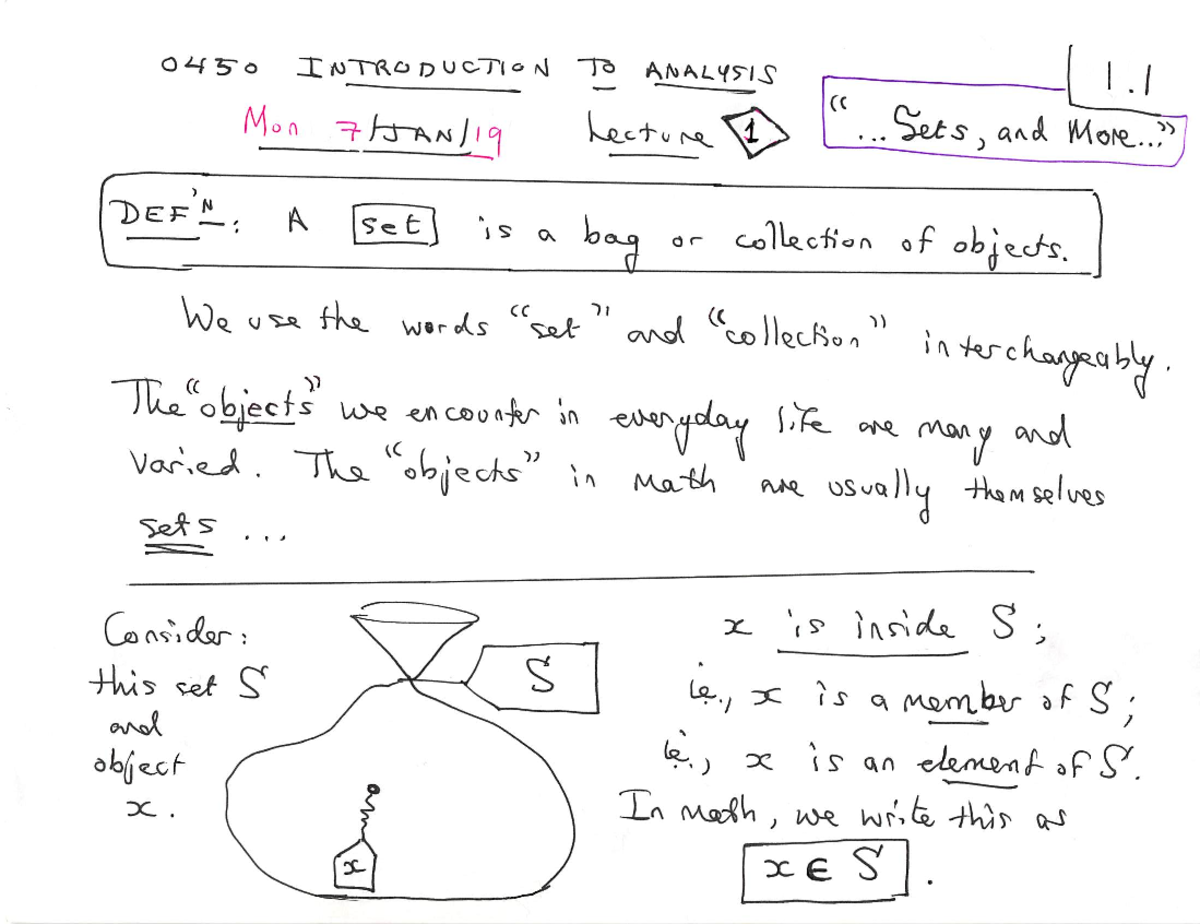 0450 INTRODUCTION TO ANALYSIS
1.1
Mon 7/JAN/19 Lecture 1
"... Sets, and More..."
DEF'N: A set is a bag or collection of objects.
We use the words "set" and "collection" interchangeably.
The "objects" we encounter in everyday life are many and
varied. The "objects" in math are usually themselves
sets ...
Consider:
this set S
and
object
x.
S
x
x is inside S;
i.e., x is a member of S;
i.e., x is an element of S.
In math, we write this as
x ∈ S.